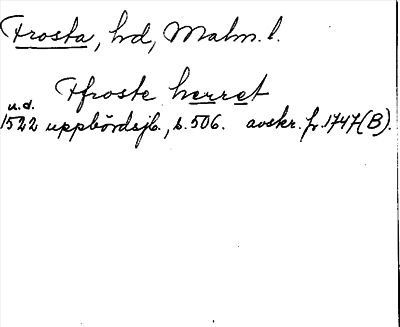 Frosta, hd, Malm. l.
Tfroste herret
u.d.
1522 uppbördsjb., s. 506. avskr. fr. 1747(B).